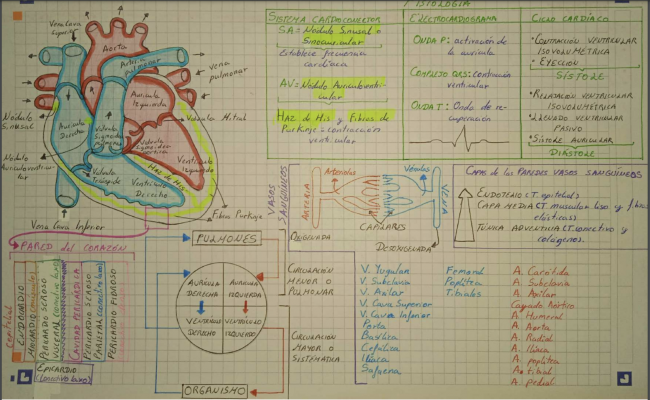 Vena Cava
Aorta
Arteria
Pulmonar
vena
pulmonar
Nódulo
Sinusal
Aurícula
Derecha
Aurícula
Izquierda
Válvula Mitral
Válvula
Sigmoidea
Pulmonar
Válvula
Sigmoidea
Aórtica
Haz de His
Nódulo
Auriculoventri-
cular
Válvula
Tricúspide
Ventrículo
Izquierdo
Ventrículo
Derecho
Vena Cava Inferior
Fibras Purkinje
FISIOLOGÍA
SISTEMA CARDIOCONECTOR
SA = Nódulo Sinusal o
Sinoauricular
Establece frecuencia
cardíaca
AV = Nódulo Auriculoventri-
cular
Haz de His y Fibras de
Purkinje = contracción
ventricular
ELECTROCARDIOGRAMA
ONDA P: activación de
la aurícula
COMPLEJO QRS: contracción
ventricular
ONDA T: Onda de re-
cuperación
CICLO CARDÍACO
• CONTRACCIÓN VENTRICULAR
ISOVOLUMÉTRICA
• EYECCIÓN
SÍSTOLE
• RELAJACIÓN VENTRICULAR
ISOVOLUMÉTRICA
• LLENADO VENTRICULAR
PASIVO
• SÍSTOLE AURICULAR
DIÁSTOLE
VASOS
SANGUÍNEOS
ARTERIA
Arteriolas
Vénulas
VENA
CAPILARES
OXIGENADA
DESOXIGENADA
CAPAS de las PAREDES VASOS SANGUÍNEOS
ENDOTELIO (T. epitelial)
CAPA MEDIA (T. muscular liso y fibras
elásticas)
TÚNICA ADVENTICIA (T. conectivo y
colágeno).
PARED del CORAZÓN
Epitelial
ENDOCARDIO
MIOCARDIO
PERICARDIO SEROSO
VISCERAL
CAVIDAD PERICÁRDICA
PERICARDIO SEROSO
PARIETAL
PERICARDIO FIBROSO
EPICARDIO
PULMONES
AURÍCULA
DERECHA
AURÍCULA
IZQUIERDA
VENTRÍCULO
DERECHO
VENTRÍCULO
IZQUIERDO
ORGANISMO
CIRCULACIÓN
MENOR O
PULMONAR
CIRCULACIÓN
MAYOR O
SISTEMÁTICA
V. Yugular
V. Subclavia
V. Axilar
V. Cava Superior
V. Cava Inferior
Porta
Basílica
Cefálica
Ilíaca
Safena
Femoral
Poplítea
Tibiales
A. Carótida
A. Subclavia
A. Axilar
Cayado Aórtico
A. Humeral
A. Aorta
A. Radial
A. Ilíaca
A. poplítea
A. tibial
A. pedial